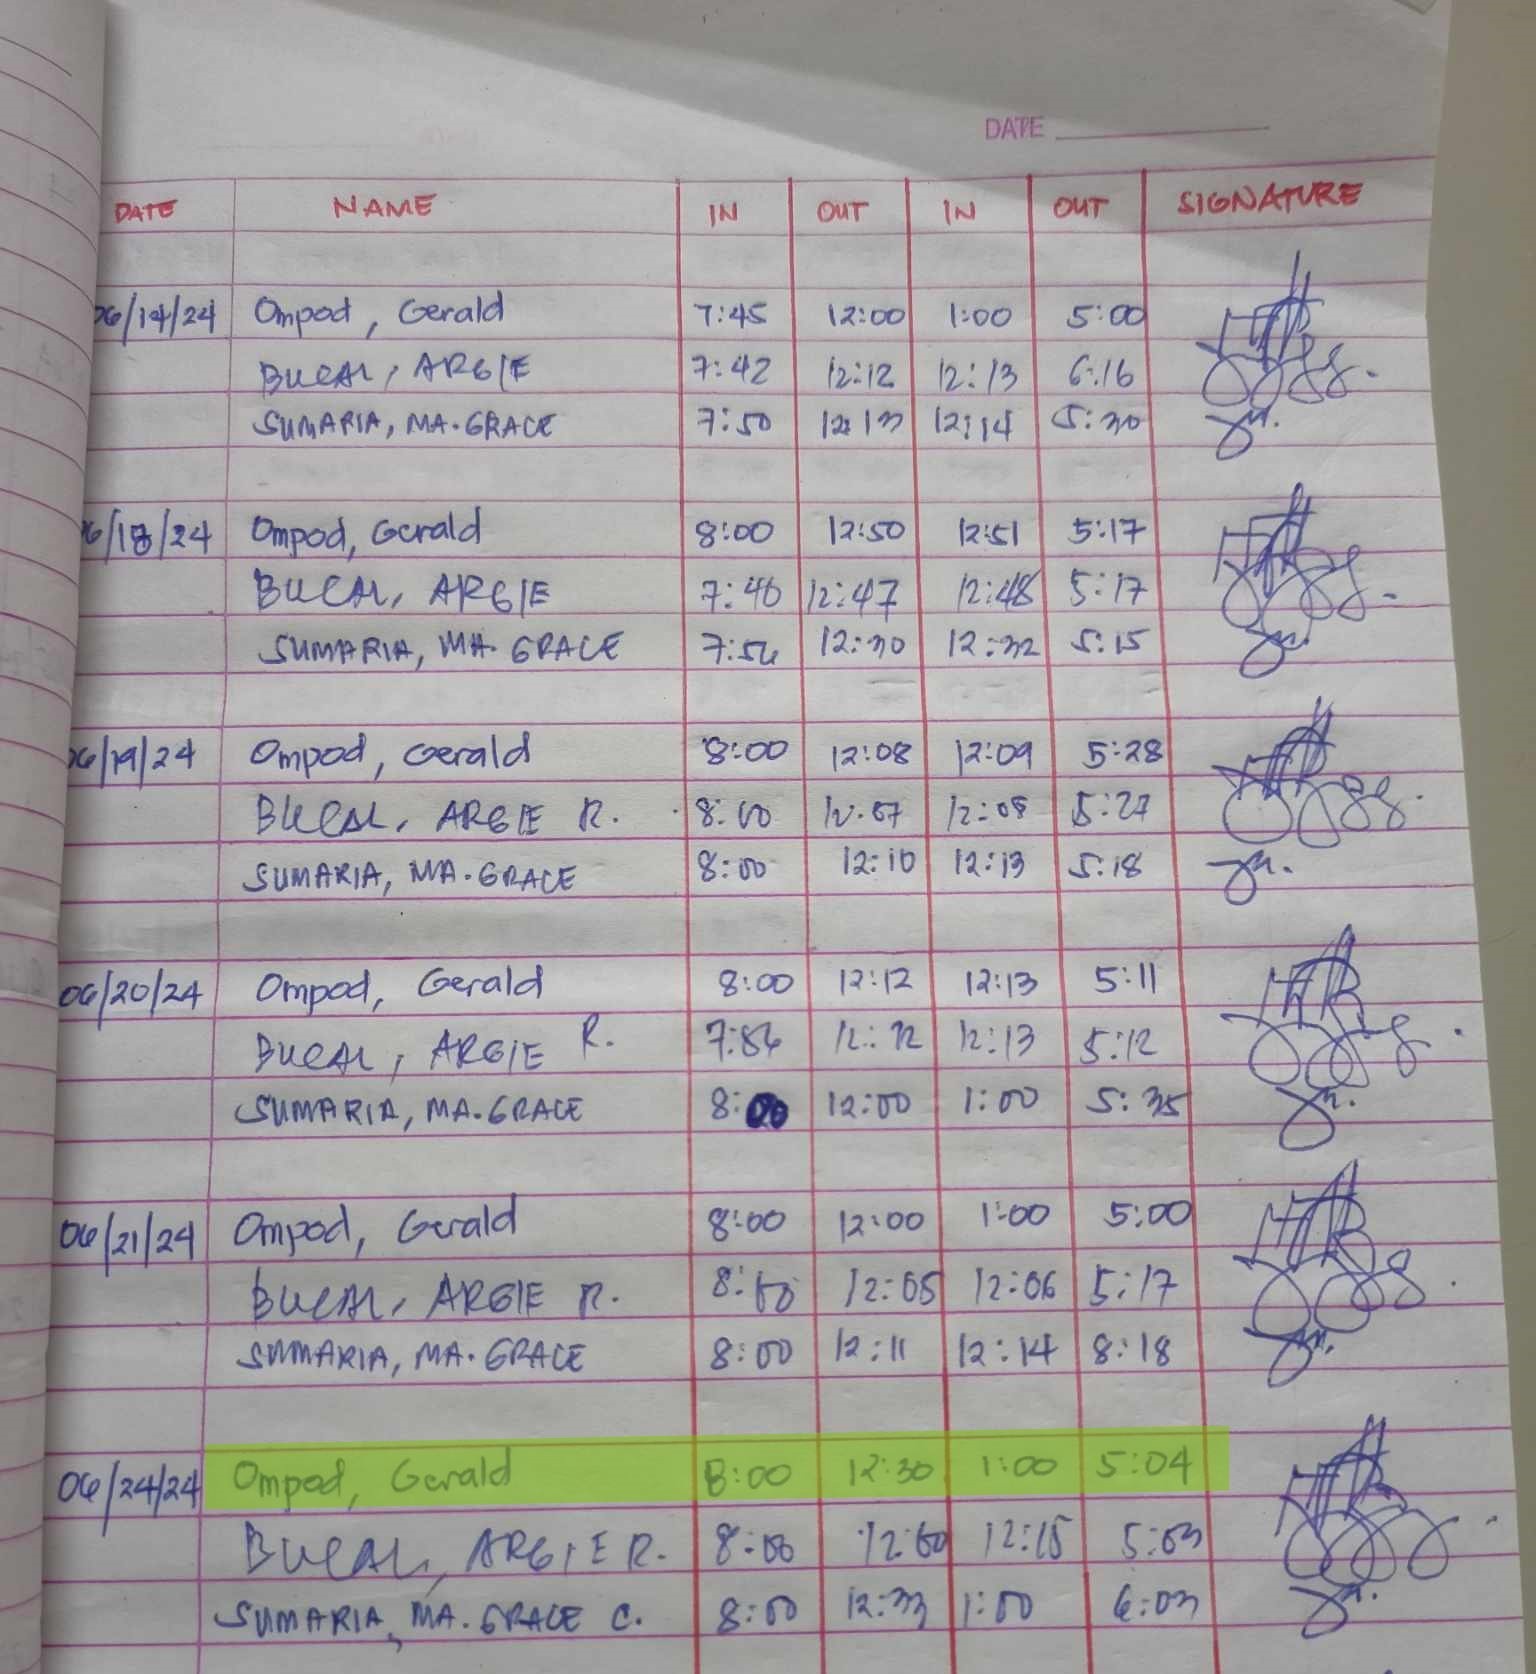 DATE
DATE NAME IN OUT IN OUT SIGNATURE
06/14/24 Ompod, Gerald 7:45 12:00 1:00 5:00
BUCAL, ARGIE 7:42 12:12 12:13 6:16
SUMARIA, MA. GRACE 7:50 12:13 12:14 5:30
06/18/24 Ompod, Gerald 8:00 12:50 12:51 5:17
BUCAL, ARGIE 7:46 12:47 12:48 5:17
SUMARIA, MA. GRACE 12:30 12:32 5:15
06/19/24 Ompod, Gerald 8:00 12:08 12:09 5:28
BUCAL, ARGIE R. 8:00 12:07 12:08 5:27
SUMARIA, MA. GRACE 8:00 12:10 12:13 5:18
06/20/24 Ompod, Gerald 8:00 12:12 12:13 5:11
BUCAL, ARGIE R. 12:12 12:13 5:12
SUMARIA, MA. GRACE 8:00 12:00 1:00 5:35
06/21/24 Ompod, Gerald 8:00 12:00 1:00 5:00
BUCAL, ARGIE R. 8:00 12:05 12:06 5:17
SUMARIA, MA. GRACE 8:00 12:11 12:14 8:18
06/24/24 Ompod, Gerald 8:00 12:30 1:00 5:04
BUCAL, ARGIE R. 8:00 12:00 12:15 5:03
SUMARIA, MA. GRACE C. 8:00 12:33 1:00 6:03